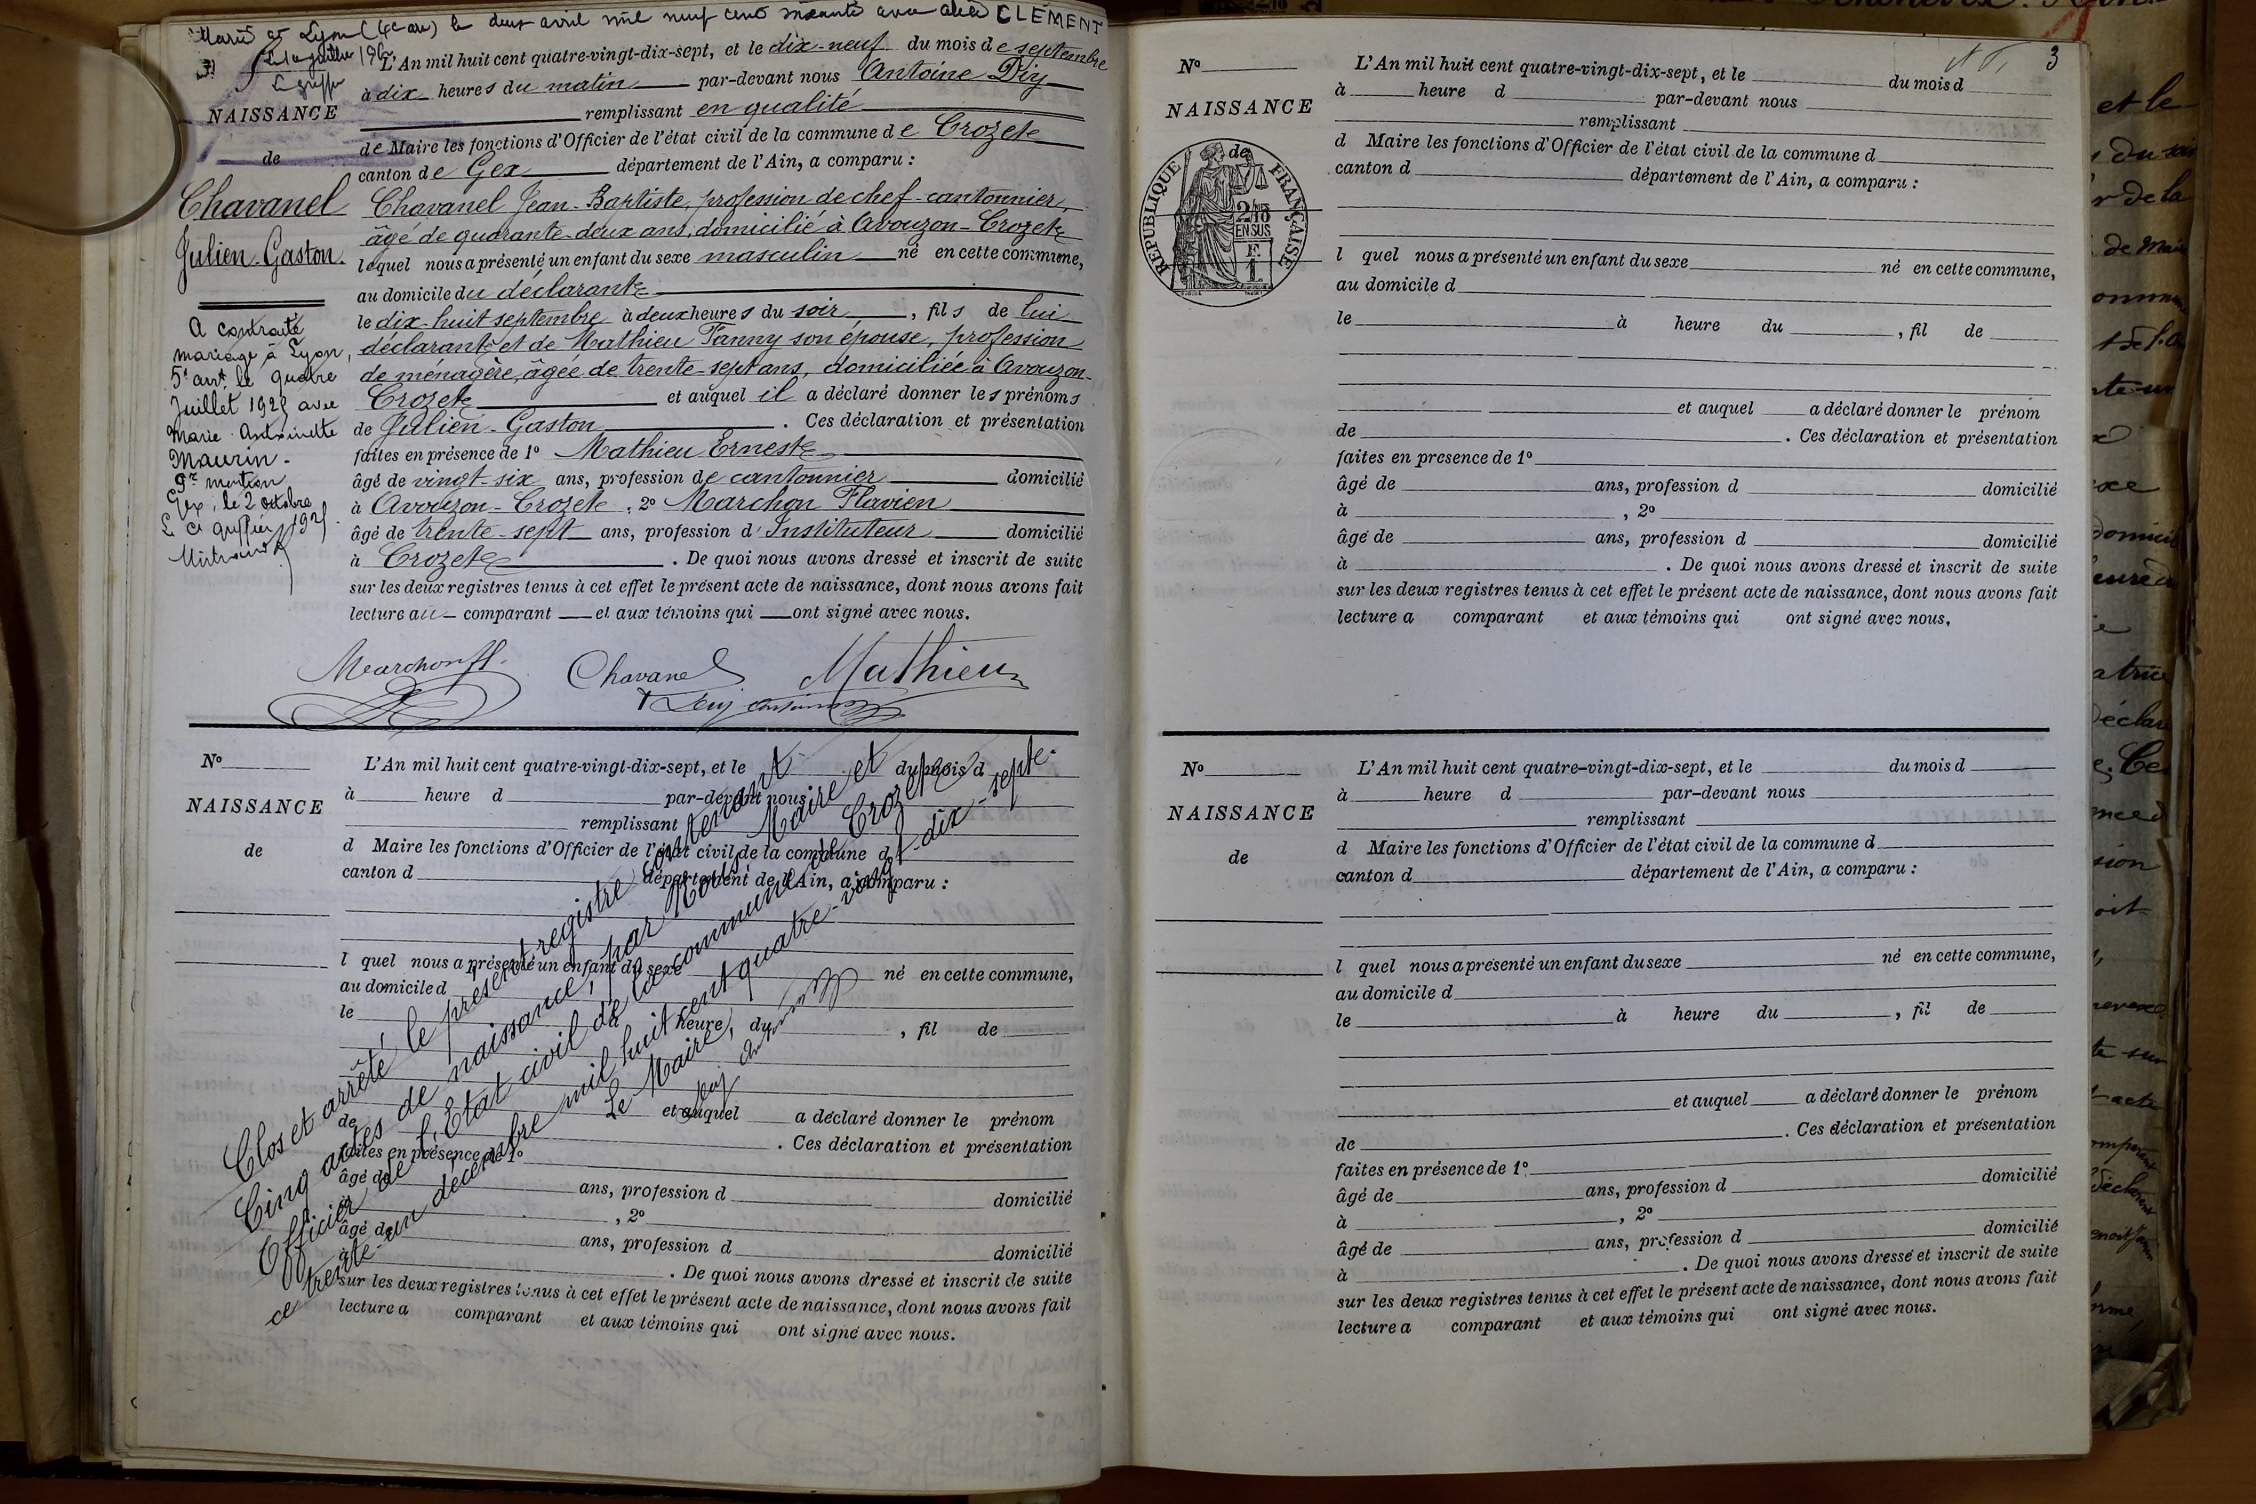 Marié à Lyon (4e arr) le deux avril mil neuf cent soixante avec CLÉMENT
NAISSANCE
de
Chavanel
Julien-Gaston.
A contracté
mariage à Lyon,
5e arrt, le quatre
Juillet 1925 avec
Marie-Antoinette
Maurin.
Gex, le 2 octobre
1925
L'An mil huit cent quatre-vingt-dix-sept, et le dix-neuf du mois de septembre
à dix heures du matin par-devant nous Antoine Déy
remplissant en qualité
de Maire les fonctions d'Officier de l'état civil de la commune de Crozet
canton de Gex département de l'Ain, a comparu :
Chavanel Jean-Baptiste, profession de chef-cantonnier,
âgé de quarante-deux ans, domicilié à Avouzon-Crozet
lequel nous a présenté un enfant du sexe masculin né en cette commune,
au domicile du déclarant
le dix-huit septembre à deux heures du soir, fils de lui
déclarant, et de Mathieu Fanny son épouse, profession
de ménagère, âgée de trente-sept ans, domiciliée à Avouzon-
Crozet et auquel il a déclaré donner les prénoms
de Julien-Gaston. Ces déclaration et présentation
faites en présence de 1° Mathieu Ernest
âgé de vingt-six ans, profession de cantonnier domicilié
à Avouzon-Crozet, 2° Marchon Flavien
âgé de trente-sept ans, profession d'Instituteur domicilié
à Crozet. De quoi nous avons dressé et inscrit de suite
sur les deux registres tenus à cet effet le présent acte de naissance, dont nous avons fait
lecture au comparant et aux témoins qui ont signé avec nous.
Marchon Fl. Chavanel Mathieu
N°
NAISSANCE
de
L'An mil huit cent quatre-vingt-dix-sept, et le du mois d
à heure d par-devant nous
remplissant
d Maire les fonctions d'Officier de l'état civil de la commune d
canton d département de l'Ain, a comparu :
l quel nous a présenté un enfant du sexe né en cette commune,
au domicile d
le à heure du , fil de
et auquel a déclaré donner le prénom
de . Ces déclaration et présentation
faites en présence de 1°
âgé de ans, profession d domicilié
à , 2°
âgé de ans, profession d domicilié
à . De quoi nous avons dressé et inscrit de suite
sur les deux registres tenus à cet effet le présent acte de naissance, dont nous avons fait
lecture a comparant et aux témoins qui ont signé avec nous.
Clos et arrêté le présent registre contenant
Cinq actes de naissance, par Nous, Maire et
Officier de l'Etat civil de la commune de Crozet
ce trente-un décembre mil huit cent quatre-vingt-dix-sept.
Le Maire,
3
N°
NAISSANCE
de
REPUBLIQUE FRANÇAISE
2/10
EN SUS
F.
1
L'An mil huit cent quatre-vingt-dix-sept, et le du mois d
à heure d par-devant nous
remplissant
d Maire les fonctions d'Officier de l'état civil de la commune d
canton d département de l'Ain, a comparu :
l quel nous a présenté un enfant du sexe né en cette commune,
au domicile d
le à heure du , fil de
et auquel a déclaré donner le prénom
de . Ces déclaration et présentation
faites en presence de 1°
âgé de ans, profession d domicilié
à , 2°
âgé de ans, profession d domicilié
à . De quoi nous avons dressé et inscrit de suite
sur les deux registres tenus à cet effet le présent acte de naissance, dont nous avons fait
lecture a comparant et aux témoins qui ont signé avec nous.
N°
NAISSANCE
de
L'An mil huit cent quatre-vingt-dix-sept, et le du mois d
à heure d par-devant nous
remplissant
d Maire les fonctions d'Officier de l'état civil de la commune d
canton d département de l'Ain, a comparu :
l quel nous a présenté un enfant du sexe né en cette commune,
au domicile d
le à heure du , fil de
et auquel a déclaré donner le prénom
de . Ces déclaration et présentation
faites en présence de 1°
âgé de ans, profession d domicilié
à , 2°
âgé de ans, profession d domicilié
à . De quoi nous avons dressé et inscrit de suite
sur les deux registres tenus à cet effet le présent acte de naissance, dont nous avons fait
lecture a comparant et aux témoins qui ont signé avec nous.